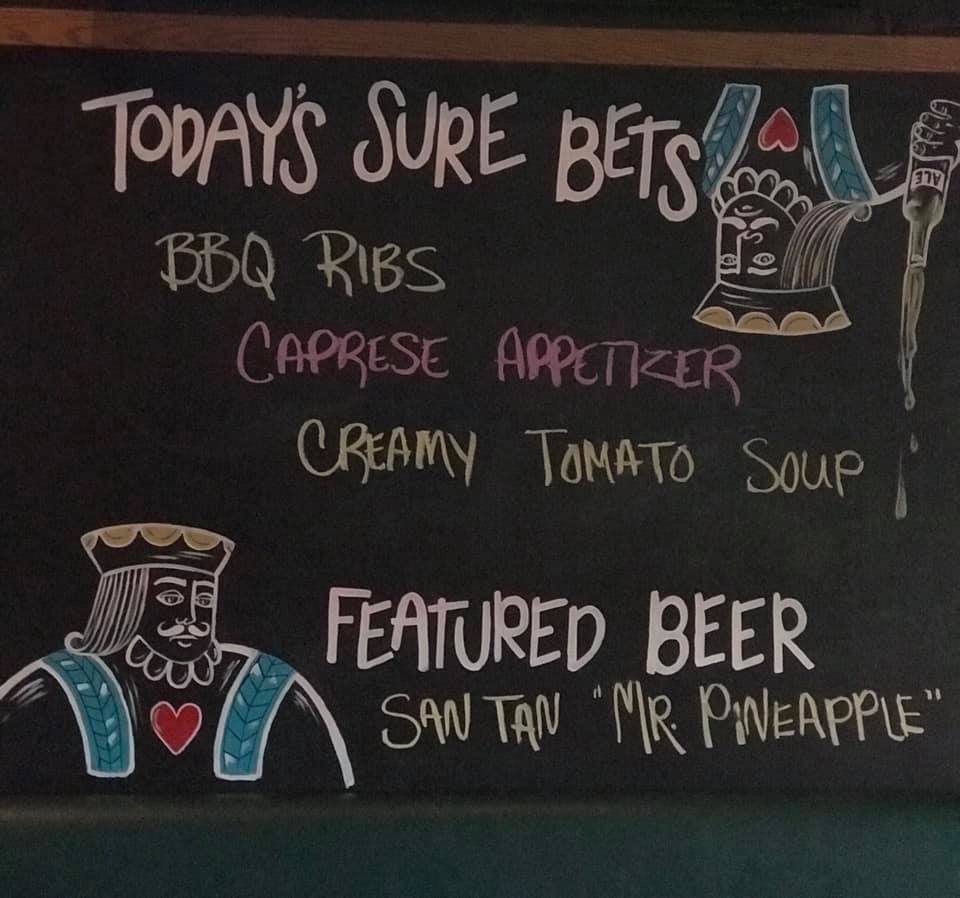 TODAY'S SURE BETS
BBQ RIBS
CAPRESE APPETIZER
CREAMY TOMATO SOUP
ALE
FEATURED BEER
SAN TAN "MR. PINEAPPLE"